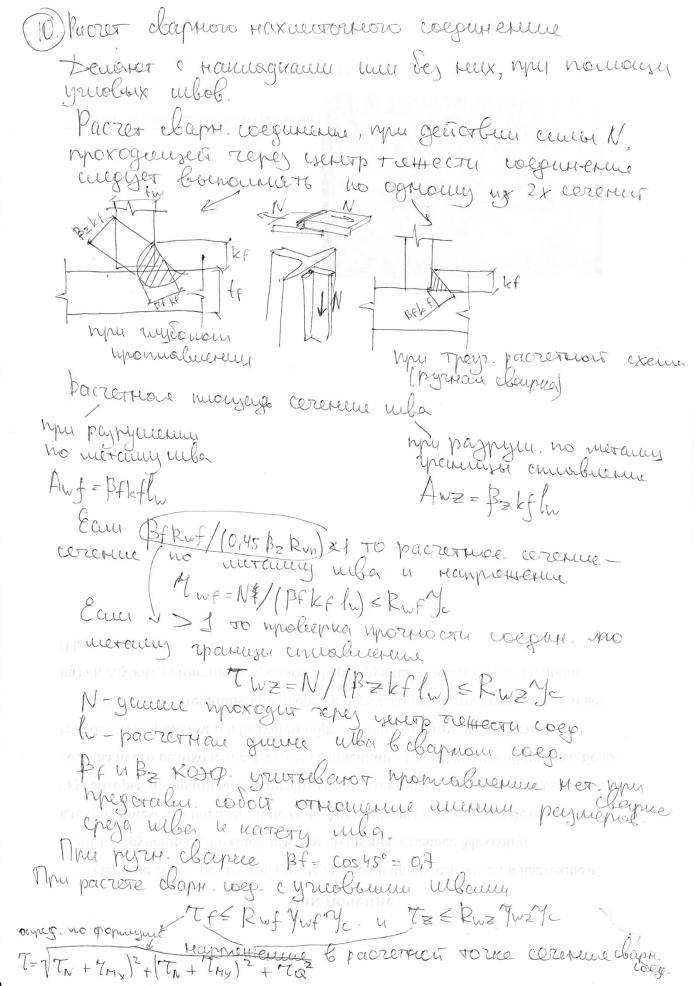 10. Расчет сварного нахлесточного соединения
Делают с накладками или без них, при помощи
угловых швов.
Расчет сварн. соединения, при действии силы N,
проходящей через центр тяжести соединения
следует выполнять по одному из 2х сечений
tw
βzkf
N
N
kf
tf
βfkf
N
βfkf
kf
при глубоком
проплавлении
при треуг. расчетной схеме
(ручная сварка)
Расчетная площадь сечения шва
при разрушении
по металлу шва
Awf = βfkflw
при разруш. по металлу
границы сплавления
Awz = βzkflw
Если βfRwf/(0,45 βz Run) ≤ 1 то расчетное сечение –
сечение по металлу шва и напряжение
τwf = N/(βf kf lw) ≤ Rwf γc
Если > 1 то проверка прочности соедин. по
металлу границы сплавления
τwz = N/(βz kf lw) ≤ Rwz γc
N - усилие проходит через центр тяжести соед.
lw - расчетная длина шва в сварном соед.
βf и βz коэф. учитывают проплавление мет. при
сварке
представл. собой отношение миним. размеров
среза шва и катету шва.
При ручн. сварке βf = cos45° = 0,7
При расчете сварн. соед. с угловыми швами
τf ≤ Rwf γwf γc и τz ≤ Rwz γwz γc
опред. по формуле
напряжение в расчетной точке сечения сварн.
соед.
τ = √(τN + τMx)² + (τN + τMy)² + τQ²